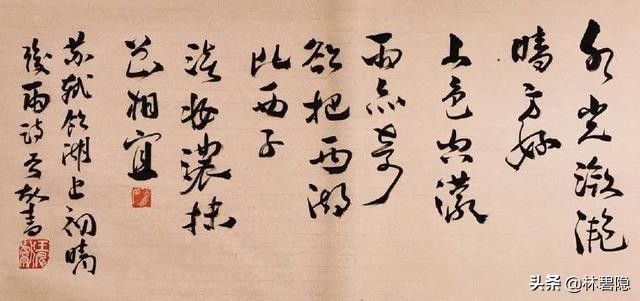 水光潋滟
晴方好
山色空濛
雨亦奇
欲把西湖
比西子
淡妆濃抹
总相宜
苏轼饮湖上初晴
後雨诗书
头条 @林碧隐